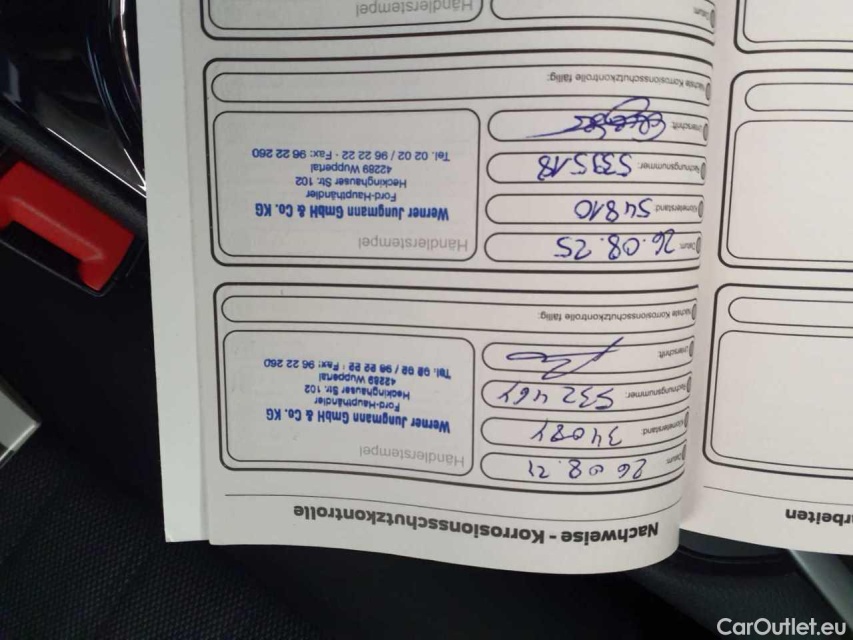 Nachweise - Korrosionsschutzkontrolle
Datum: 26 08.24
Kilometerstand: 34084
Rechnungsnummer: 532464
Unterschrift:
Händlerstempel
Werner Jungmann GmbH & Co. KG
Ford-Haupthändler
Heckinghauser Str. 102
42289 Wuppertal
Tel. 02 02 / 96 22 22 · Fax: 96 22 260
Nächste Korrosionsschutzkontrolle fällig:
Datum: 26.08.25
Kilometerstand: 54810
Rechnungsnummer: 533518
Unterschrift:
Händlerstempel
Werner Jungmann GmbH & Co. KG
Ford-Haupthändler
Heckinghauser Str. 102
42289 Wuppertal
Tel. 02 02 / 96 22 22 · Fax: 96 22 260
Nächste Korrosionsschutzkontrolle fällig:
Datum:
Händlerstempel
arbeiten
CarOutlet.eu